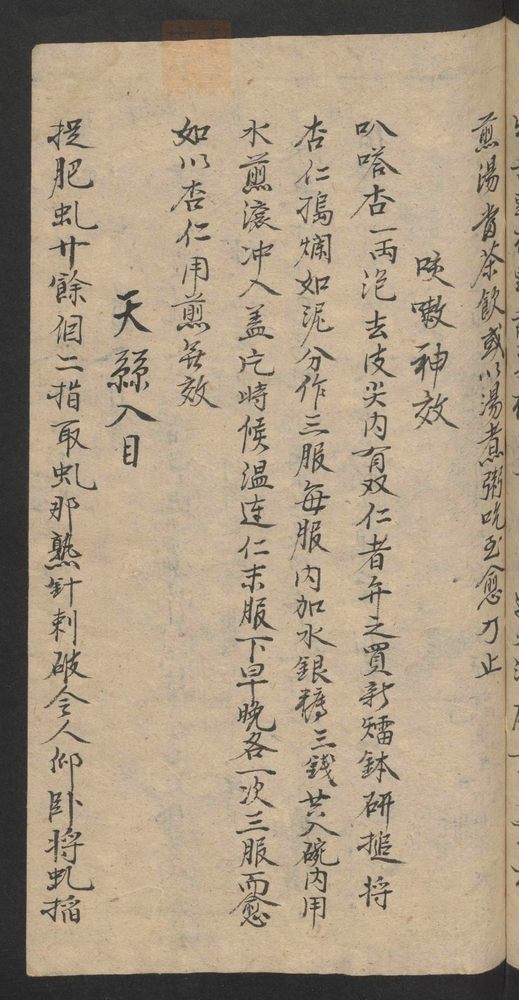 煎湯當茶飲或以湯煮粥吃至愈乃止
咳嗽神效
叭嗒杏一両泡去皮尖内有双仁者弃之買新擂鉢研搥将
杏仁搗爛如泥分作三服每服内加水銀糖三錢共入碗内用
水煎滚冲入盖片時候温連仁末服下早晚各一次三服而愈
如以杏仁用煎無效
天絲入目
捉肥虱廿餘個二指取虱那熟針刺破令人仰卧将虱搯